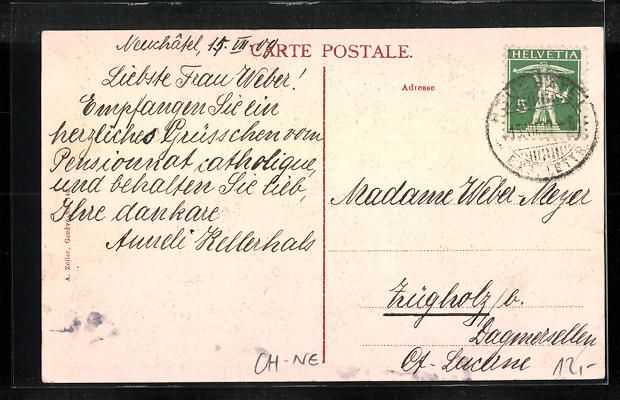 Neuchâtel, 15. VII 09.
CARTE POSTALE.
Liebste Frau Weber!
Empfangen Sie ein
herzliches Grüsschen vom
Pensionnat catholique,
und behalten Sie lieb,
Ihre dankare
Aureli Kellerhals
A. Zoller, Genève
Adresse
HELVETIA
5
Madame Weber-Meyer
Zügholz / b.
Dagmersellen
Ct. Lucerne
CH-NE
12,-